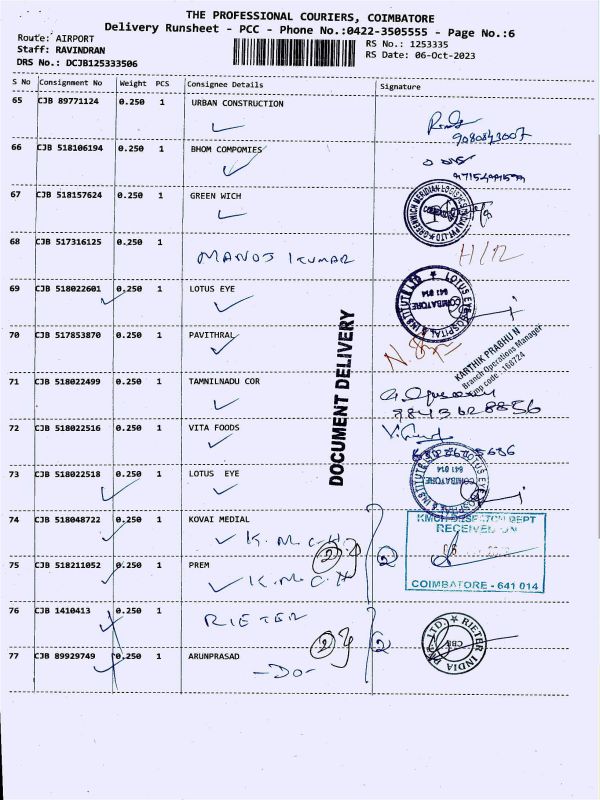 THE PROFESSIONAL COURIERS, COIMBATORE
Delivery Runsheet - PCC - Phone No.:0422-3505555 - Page No.:6
Route: AIRPORT
Staff: RAVINDRAN
DRS No.: DCJB125333506
RS No.: 1253335
RS Date: 06-Oct-2023
S No Consignment No Weight PCS Consignee Details Signature
65 CJB 89771124 0.250 1 URBAN CONSTRUCTION
9080843007
66 CJB 518106194 0.250 1 BHOM COMPOMIES
67 CJB 518157624 0.250 1 GREEN WICH
GREENWICH MERIDIAN LOGISTICS INDIA PVT LTD
68 CJB 517316125 0.250 1
MANOJ KUMAR
H/R
69 CJB 518022601 0.250 1 LOTUS EYE
LOTUS EYE HOSPITAL & INSTITUTE LTD
COIMBATORE
641 014
70 CJB 517853870 0.250 1 PAVITHRAL
KARTHIK PRABHU N
Branch Operations Manager
Emp code : 168724
DOCUMENT DELIVERY
71 CJB 518022499 0.250 1 TAMNILNADU COR
9843628856
72 CJB 518022516 0.250 1 VITA FOODS
73 CJB 518022518 0.250 1 LOTUS EYE
LOTUS EYE HOSPITAL & INSTITUTE
COIMBATORE
641 014
74 CJB 518048722 0.250 1 KOVAI MEDIAL
K.M.C.H
KMCH DESPATCH DEPT
RECEIVED ON
75 CJB 518211052 0.250 1 PREM
K.M.C.H
2
2
COIMBATORE - 641 014
76 CJB 1410413 0.250 1
RIETER
2
2
RIETER INDIA PVT. LTD.
CBE
77 CJB 89929749 0.250 1 ARUNPRASAD
-DO-